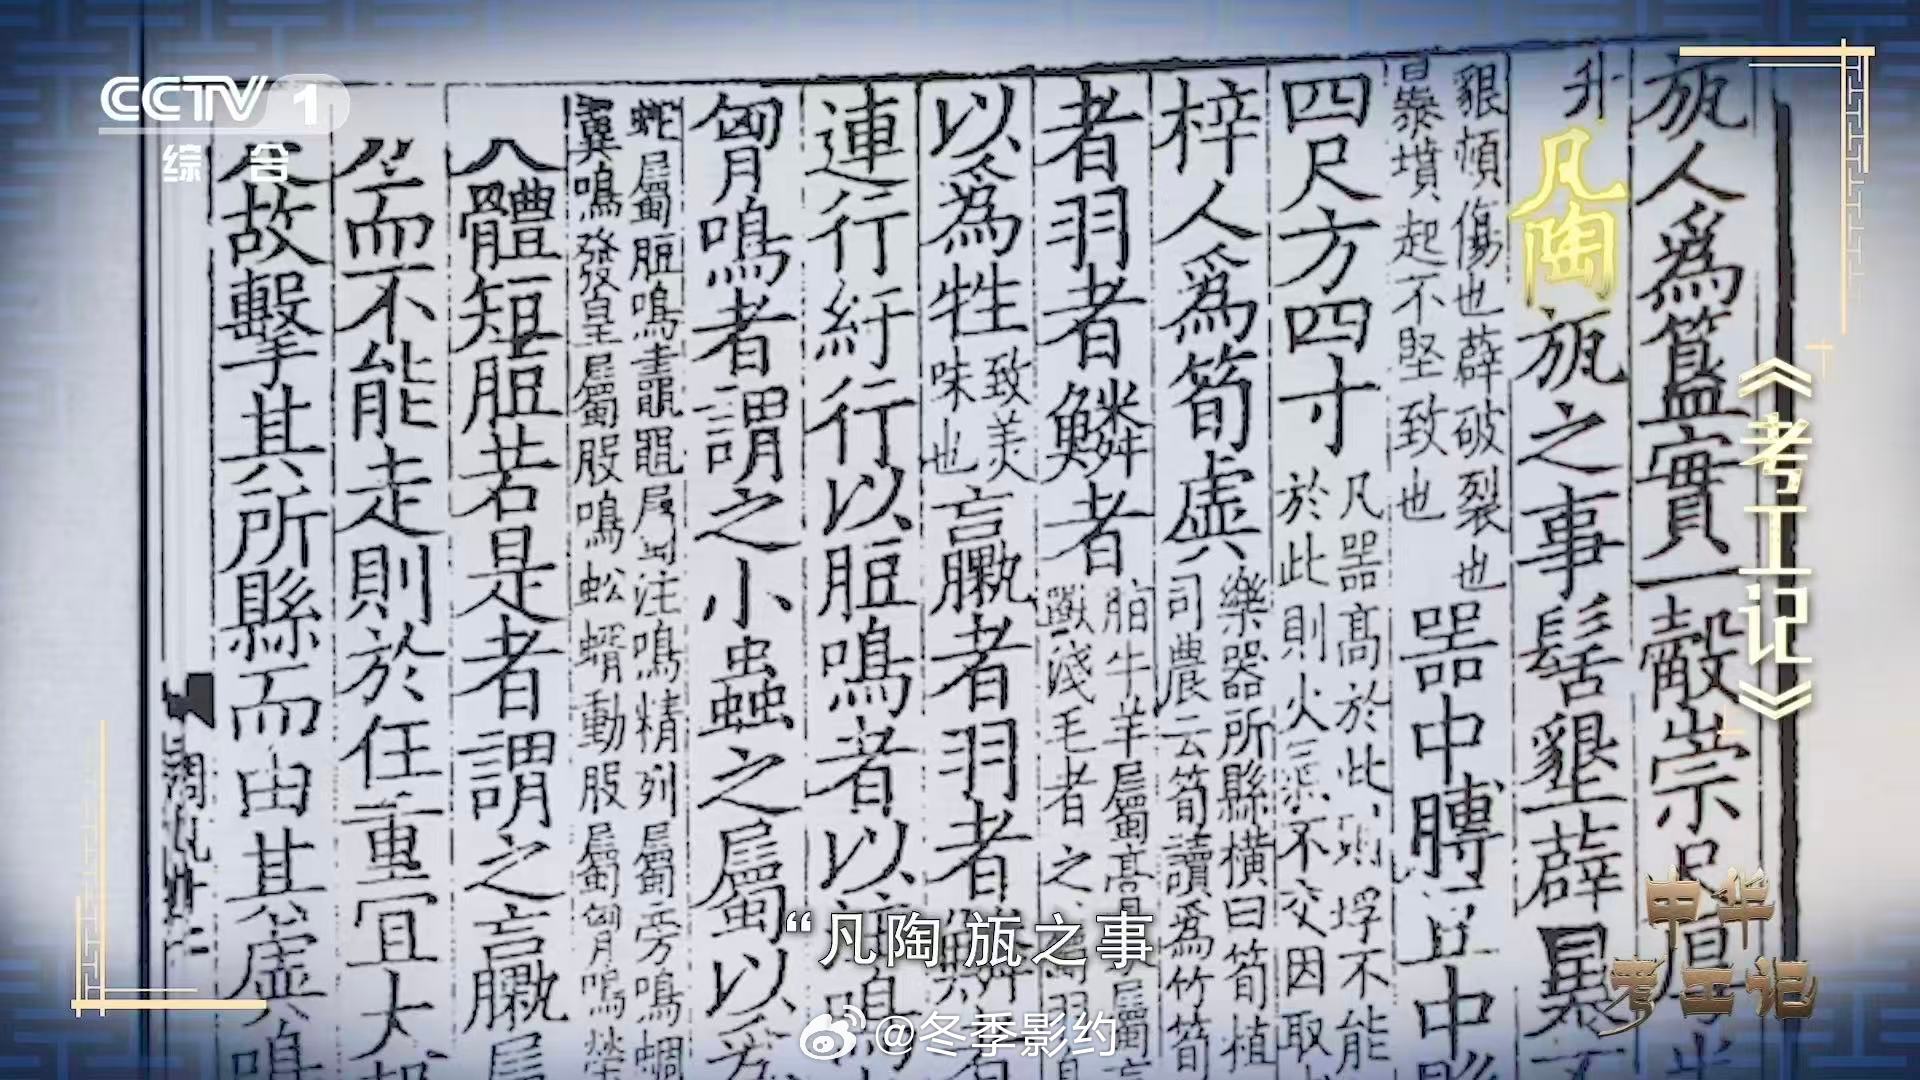 CCTV 1
综合
《考工记》
瓬人爲簋實一觳崇尺厚半
凡陶瓬之事髺墾薜暴不
墾頓傷也薜破裂也
暴墳起不堅致也
器中膊豆中縣
四尺方四寸
凡器高於此則垺不能
於此則火氣不交因取
梓人爲筍虡
樂器所縣橫曰筍植
司農云筍讀爲竹筍
者羽者鱗者
脂牛羊屬膏豕屬
獸淺毛者之
以爲牲
致美
味也
臝者羽者鱗者
連行紆行以脰鳴者以注鳴
匈鳴者謂之小蟲之屬以爲
蛇屬脰鳴鼃黽屬注鳴精列屬旁鳴蜩
翼鳴發皇屬股鳴蚣蝑動股屬匈鳴榮
大體短脰若是者謂之臝屬
而不能走則於任重宜大
故擊其所縣而由其虡鳴
周禮十二
中华考工记
“凡陶瓬之事
@冬季影约